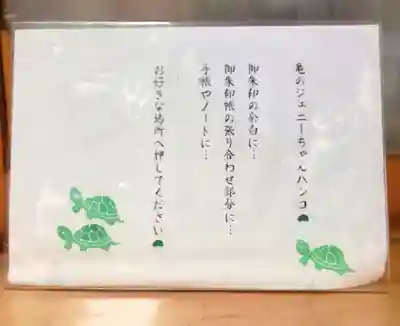 亀のジェニーちゃんハンコ
御朱印の余白に…
御朱印帳の張り合わせ部分に…
手帳やノートに…
お好きな場所へ押してください